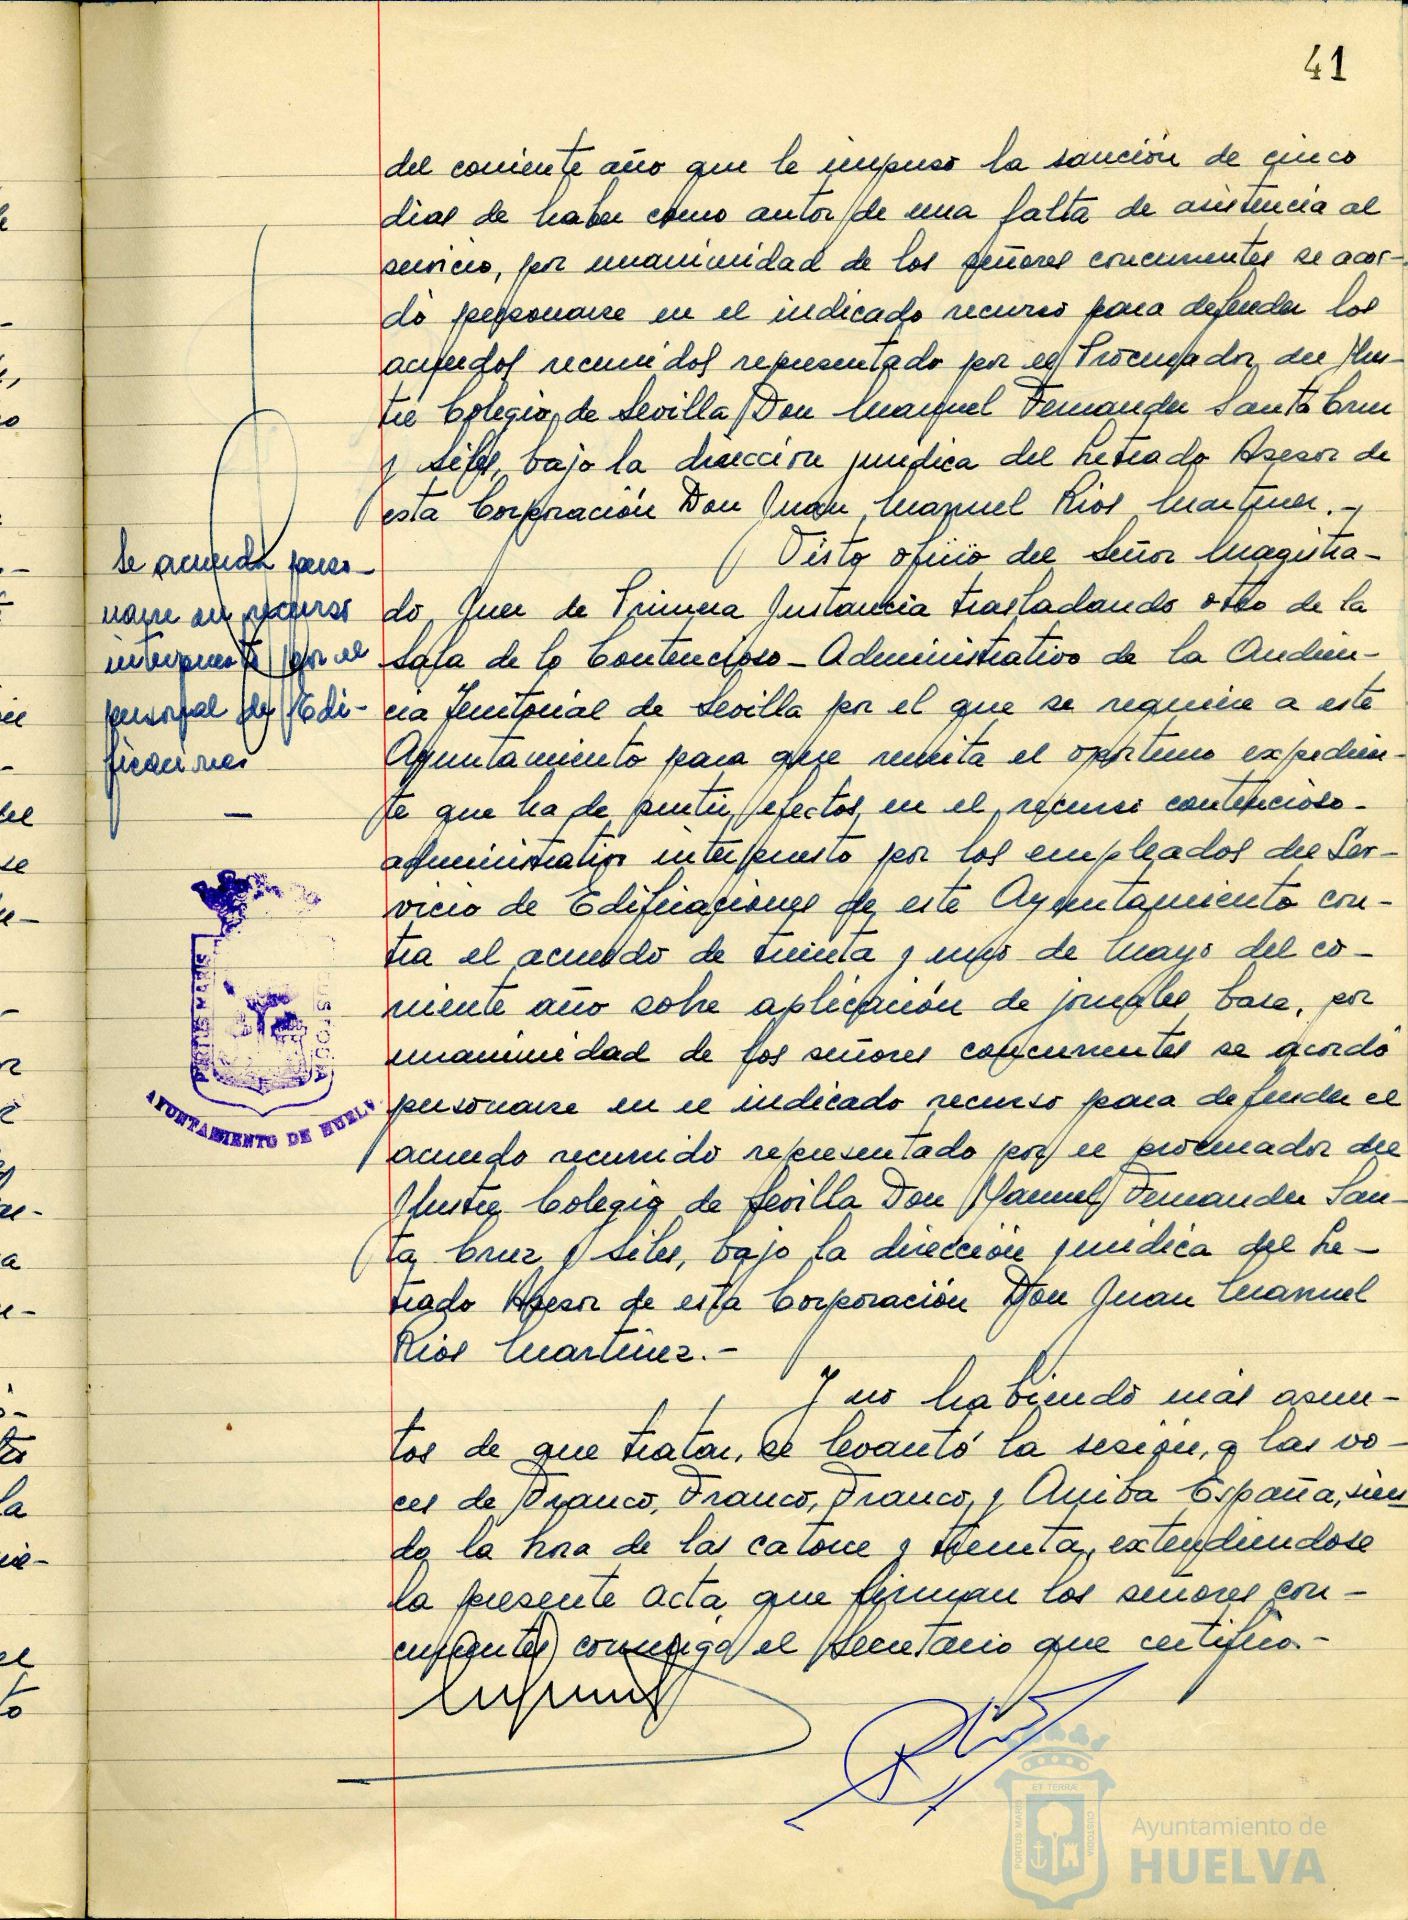 41
del corriente año que le impuso la sanción de cinco
dias de haber como autor de una falta de asistencia al
servicio, por unanimidad de los señores concurrentes se acor-
dó personarse en el indicado recurso para defender los
acuerdos recurridos representado por el Procurador del Ilus-
tre Colegio de Sevilla Don Manuel Fernandez Santa Cruz
y Siles, bajo la dirección juridica del Letrado Asesor de
esta Corporación Don Juan Manuel Rios Martinez.-
Se acuerda perso-
narse en recurso
interpuesto por el
personal de Edi-
ficaciones
—
Visto oficio del Señor Magistra-
do Juez de Primera Instancia trasladando otro de la
Sala de lo Contencioso-Administrativo de la Audien-
cia Territorial de Sevilla por el que se requiere a este
Ayuntamiento para que remita el oportuno expedien-
te que ha de surtir efectos en el recurso contencioso-
administrativo interpuesto por los empleados del Ser-
vicio de Edificaciones de este Ayuntamiento con-
tra el acuerdo de treinta y uno de Mayo del co-
rriente año sobre aplicación de jornales base, por
unanimidad de los señores concurrentes se acordó
personarse en el indicado recurso para defender el
acuerdo recurrido representado por el procurador del
Ilustre Colegio de Sevilla Don Manuel Fernandez San-
ta Cruz y Siles, bajo la dirección juridica del Le-
trado Asesor de esta Corporación Don Juan Manuel
Rios Martinez.-
Y no habiendo más asun-
tos de que tratar, se levantó la sesión, a las vo-
ces de Franco, Franco, Franco, y Arriba España, sien
do la hora de las catorce y treinta, extendiendose
la presente acta que firman los señores con-
currentes conmigo el Secretario que certifico.-
PORTUS MARIS
AYUNTAMIENTO DE HUELVA
ET TERRÆ
PORTUS MARIS
CUSTODIA
Ayuntamiento de
HUELVA